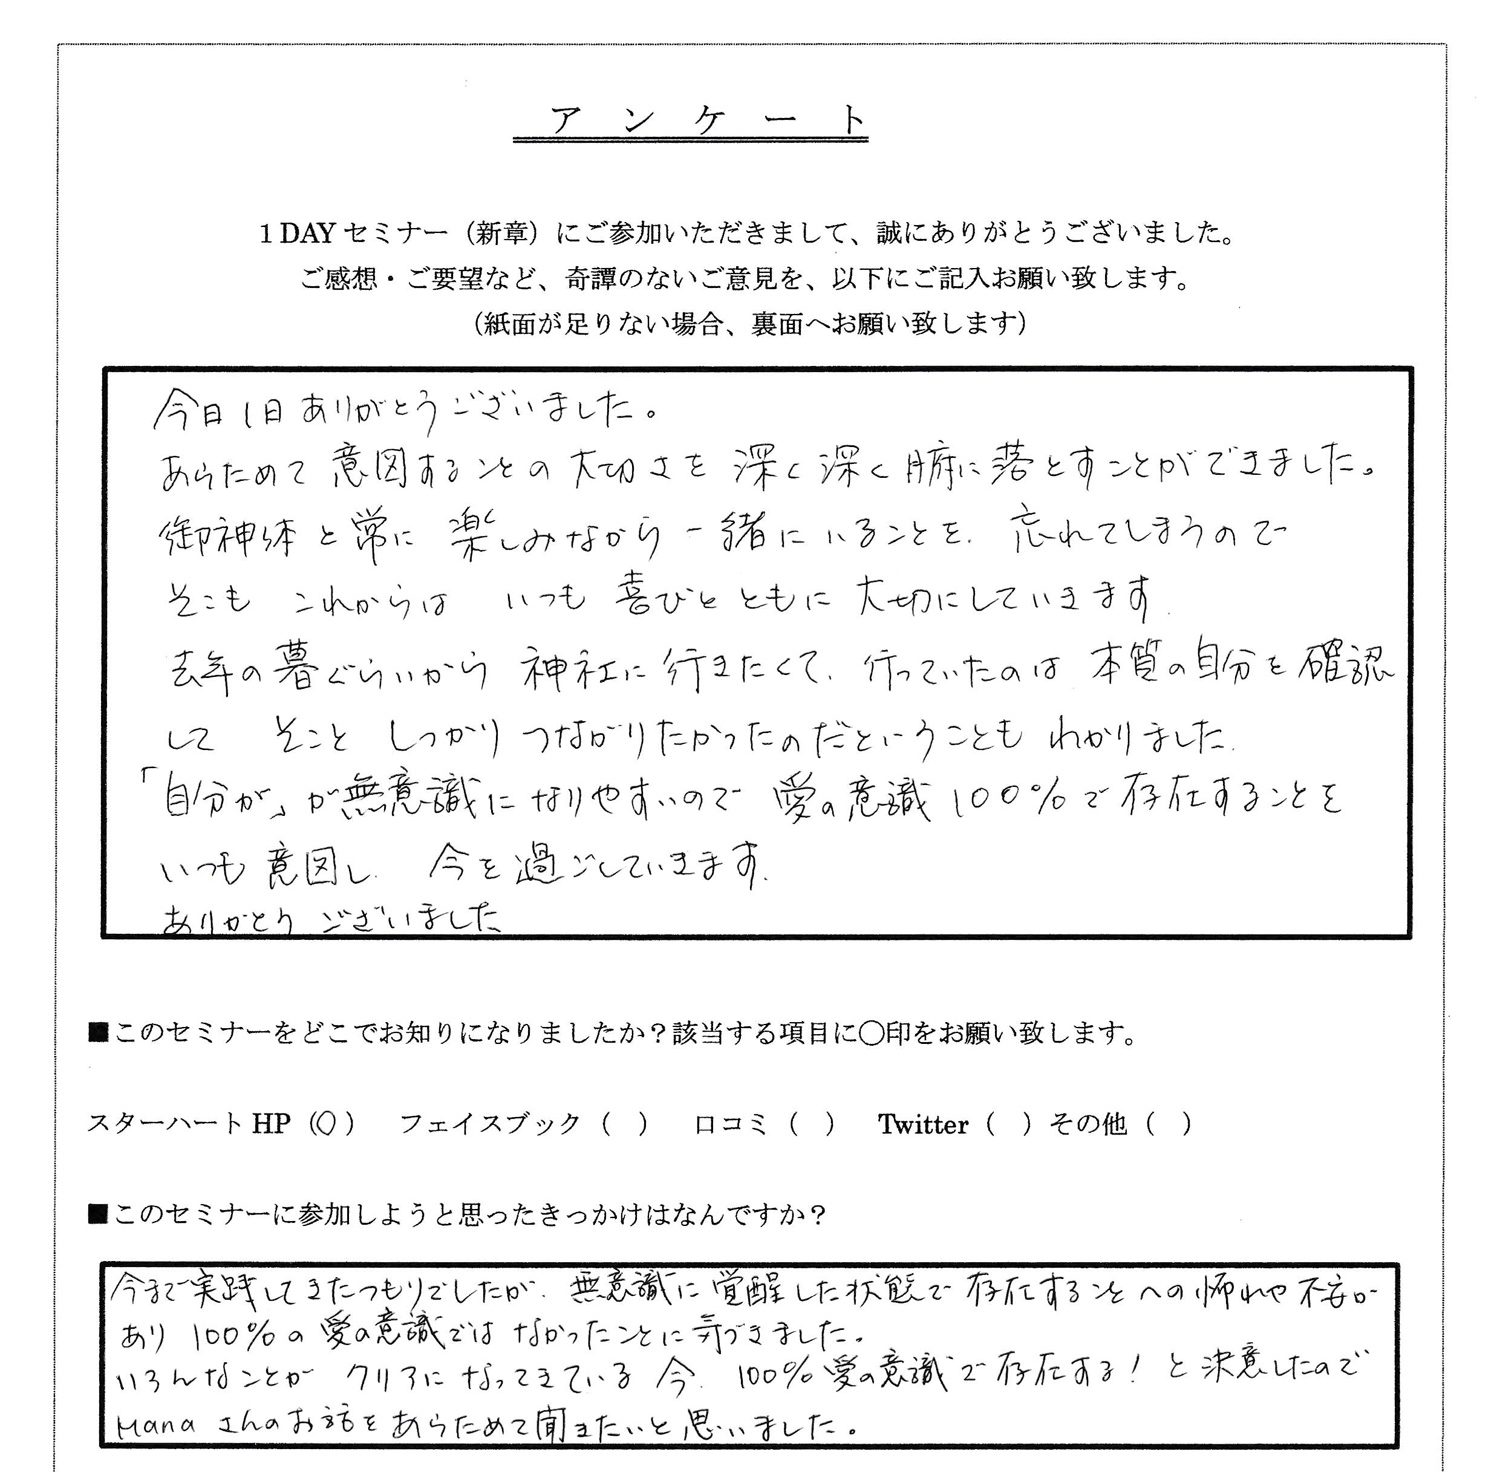 アンケート
１DAYセミナー（新章）にご参加いただきまして、誠にありがとうございました。
ご感想・ご要望など、奇譚のないご意見を、以下にご記入お願い致します。
（紙面が足りない場合、裏面へお願い致します）
今日1日ありがとうございました。
あらためて意図することの大切さを深く深く腑に落とすことができました。
御神体と常に楽しみながら一緒にいることを、忘れてしまうので
そこもこれからは いつも喜びとともに大切にしていきます.
去年の暮ぐらいから神社に行きたくて、行っていたのは本質の自分を確認
して そことしっかりつながりたかったのだということもわかりました.
「自分が」が無意識になりやすいので愛の意識100%で存在することを
いつも意図し、今を過ごしていきます.
ありがとうございました
■このセミナーをどこでお知りになりましたか？該当する項目に〇印をお願い致します。
スターハートHP（○） フェイスブック（ ） 口コミ（ ） Twitter（ ）その他（ ）
■このセミナーに参加しようと思ったきっかけはなんですか？
今まで実践してきたつもりでしたが、無意識に覚醒した状態で存在することへの怖れや不安が
あり100%の愛の意識ではなかったことに気づきました。
いろんなことがクリアになってきている今、100%愛の意識で存在する！と決意したので
Manaさんのお話をあらためて聞きたいと思いました。